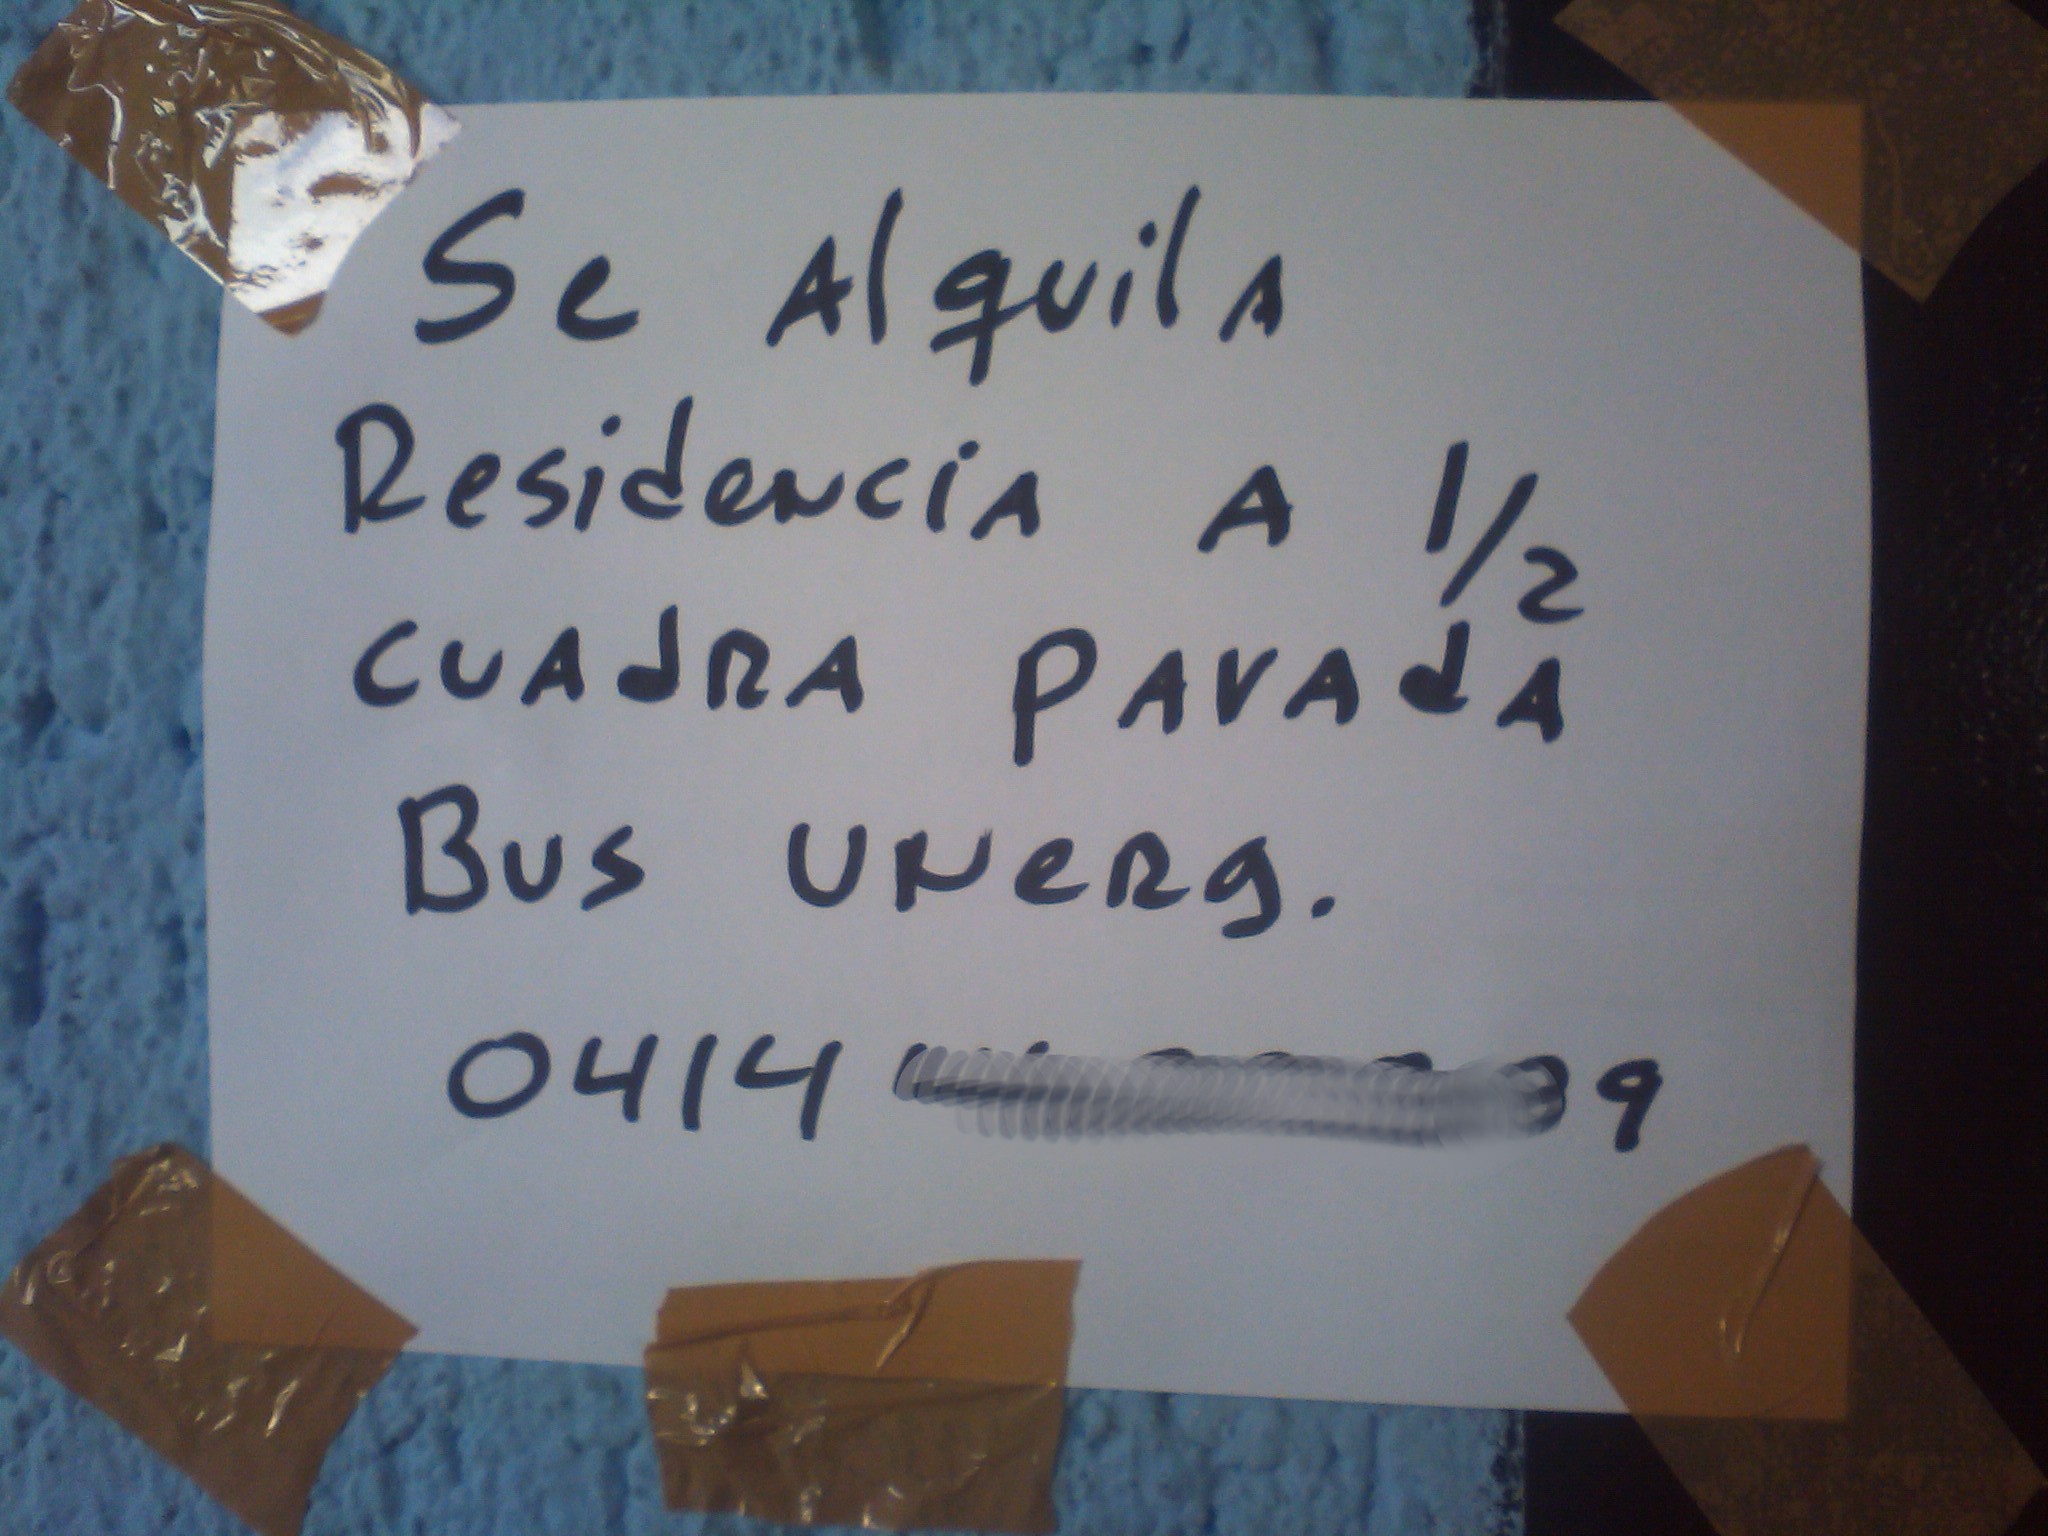 Se Alquila
Residencia A 1/2
cuadra pavada
Bus Unerg.
0414 39